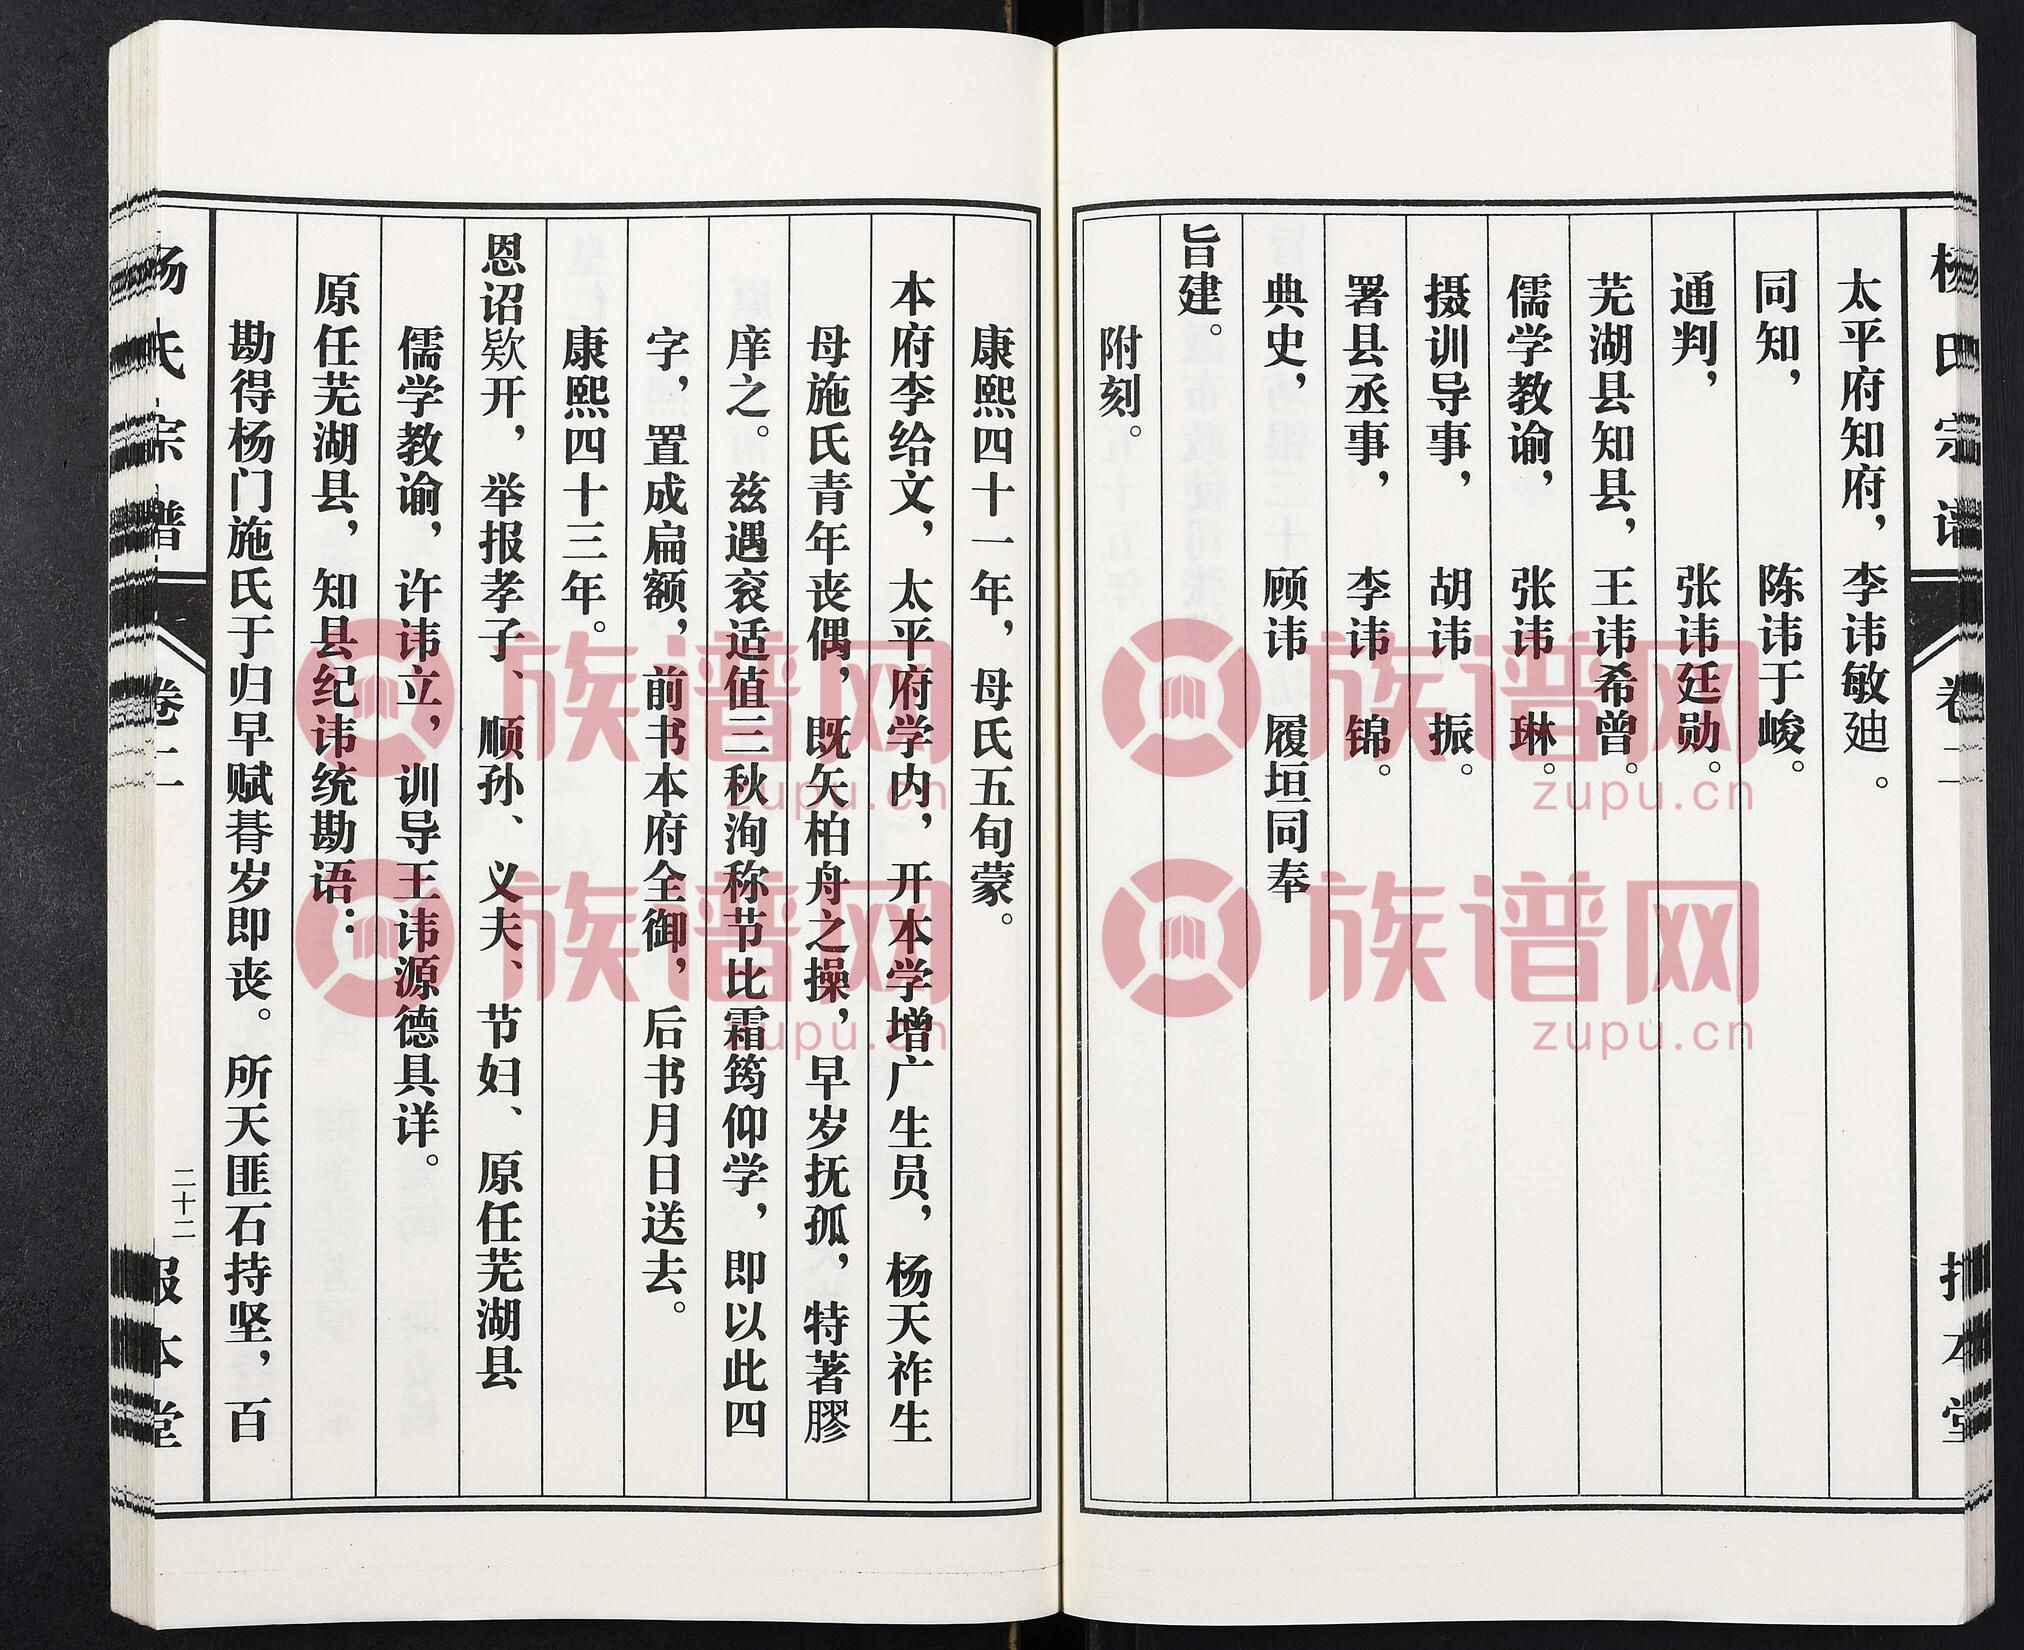 杨氏宗谱 卷二
太平府知府，李讳敏廸。
同知，陈讳于峻。
通判，张讳廷勋。
芜湖县知县，王讳希曾。
儒学教谕，张讳琳。
摄训导事，胡讳振。
署县丞事，李讳锦。
典史，顾讳履垣同奉
旨建。
附刻。
康熙四十一年，母氏五旬蒙。
本府李给文，太平府学内，开本学增广生员，杨天祚生
母施氏青年丧偶，既矢柏舟之操，早岁抚孤，特著膠
庠之。兹遇衮适值三秋洵称节比霜筠仰学，即以此四
字，置成扁额，前书本府全御，后书月日送去。
康熙四十三年。
恩诏欵开，举报孝子、顺孙、义夫、节妇、原任芜湖县
儒学教谕，许讳立，训导王讳源德具详。
原任芜湖县，知县纪讳统勘语：
勘得杨门施氏于归早赋朞岁即丧。所天匪石持坚，百
杨氏宗谱 卷二 二十二 报本堂
族谱网
zupu.cn
族谱网
zupu.cn
族谱网
zupu.cn
族谱网
zupu.cn